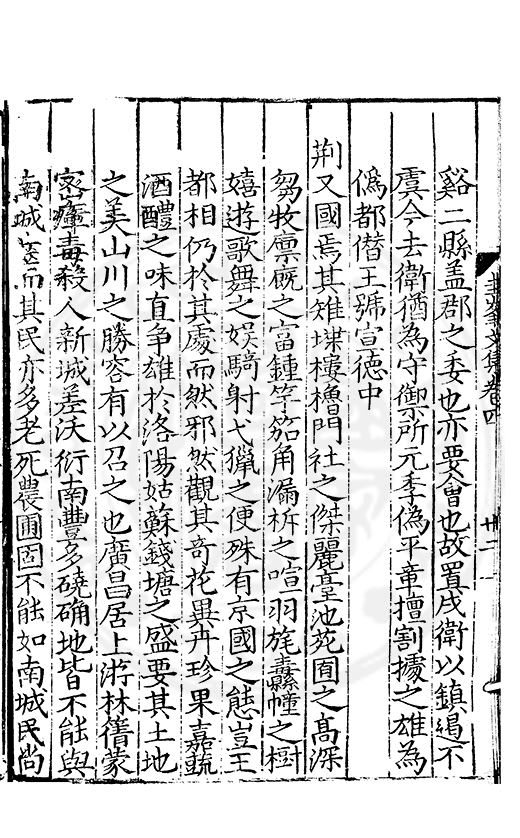 圭峯文集卷四
谿二縣盖郡之委也亦要會也故置戍衛以鎮遏不
虞今去衛猶為守禦所元季偽平章擅割據之雄為
偽都僣王號宣德中
荆又國焉其雉堞樓櫓門社之傑麗臺池苑囿之髙深
芻牧廪厩之富鍾竽笳角漏柝之喧羽旄纛幢之樹
嬉遊歌舞之娱騎射弋獵之便殊有京國之態豈王
都相仍於其處而然邪然觀其奇花異卉珍果嘉蔬
酒醴之味直争雄於洛陽姑蘇錢塘之盛要其土地
之美山川之勝容有以召之也廣昌居上游林箐蒙
密瘴毒殺人新城差沃衍南豐多磽确地皆不能與
南城等而其民亦多老死農圃固不能如南城民尚